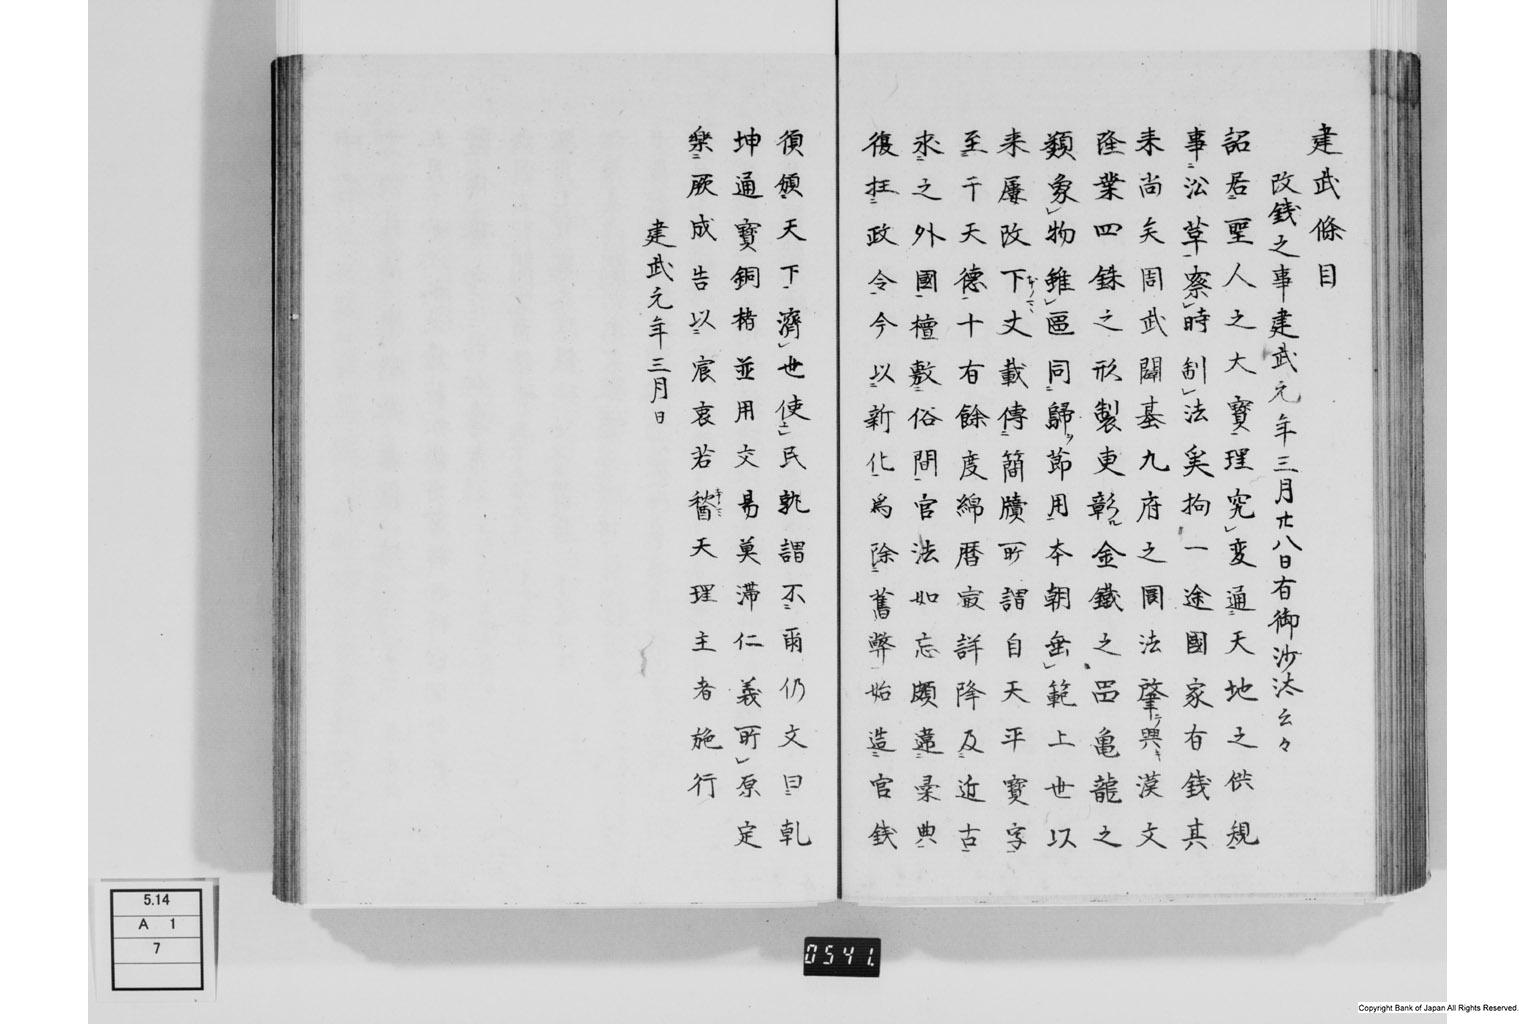 建武條目
改錢之事建武元年三月廿八日有御沙汰云々
詔居聖人之大寶理究変通天地之供規
事訟草察時制法矣拘一途國家有錢其
来尚矣周武闢基九府之圜法肇興漢文
隆業四銖之形製更彰金鐵之品亀龍之
類象物雖區同歸節用本朝垂範上世以
来屢改下文載傳簡牘所謂自天平寶字
至于天德十有餘度綿暦寂詳降及近古
求之外國檀敷俗間官法如忘頗違彙典
復抂政令今以新化為除舊弊始造官錢
須頒天下濟世使民孰謂不爾仍文曰乹
坤通寶銅楮並用交易莫滯仁義所原定
樂厥成告以宸衷若稽天理主者施行
建武元年三月日
5.14
A 1
7
0541.
Copyright Bank of Japan All Rights Reserved.